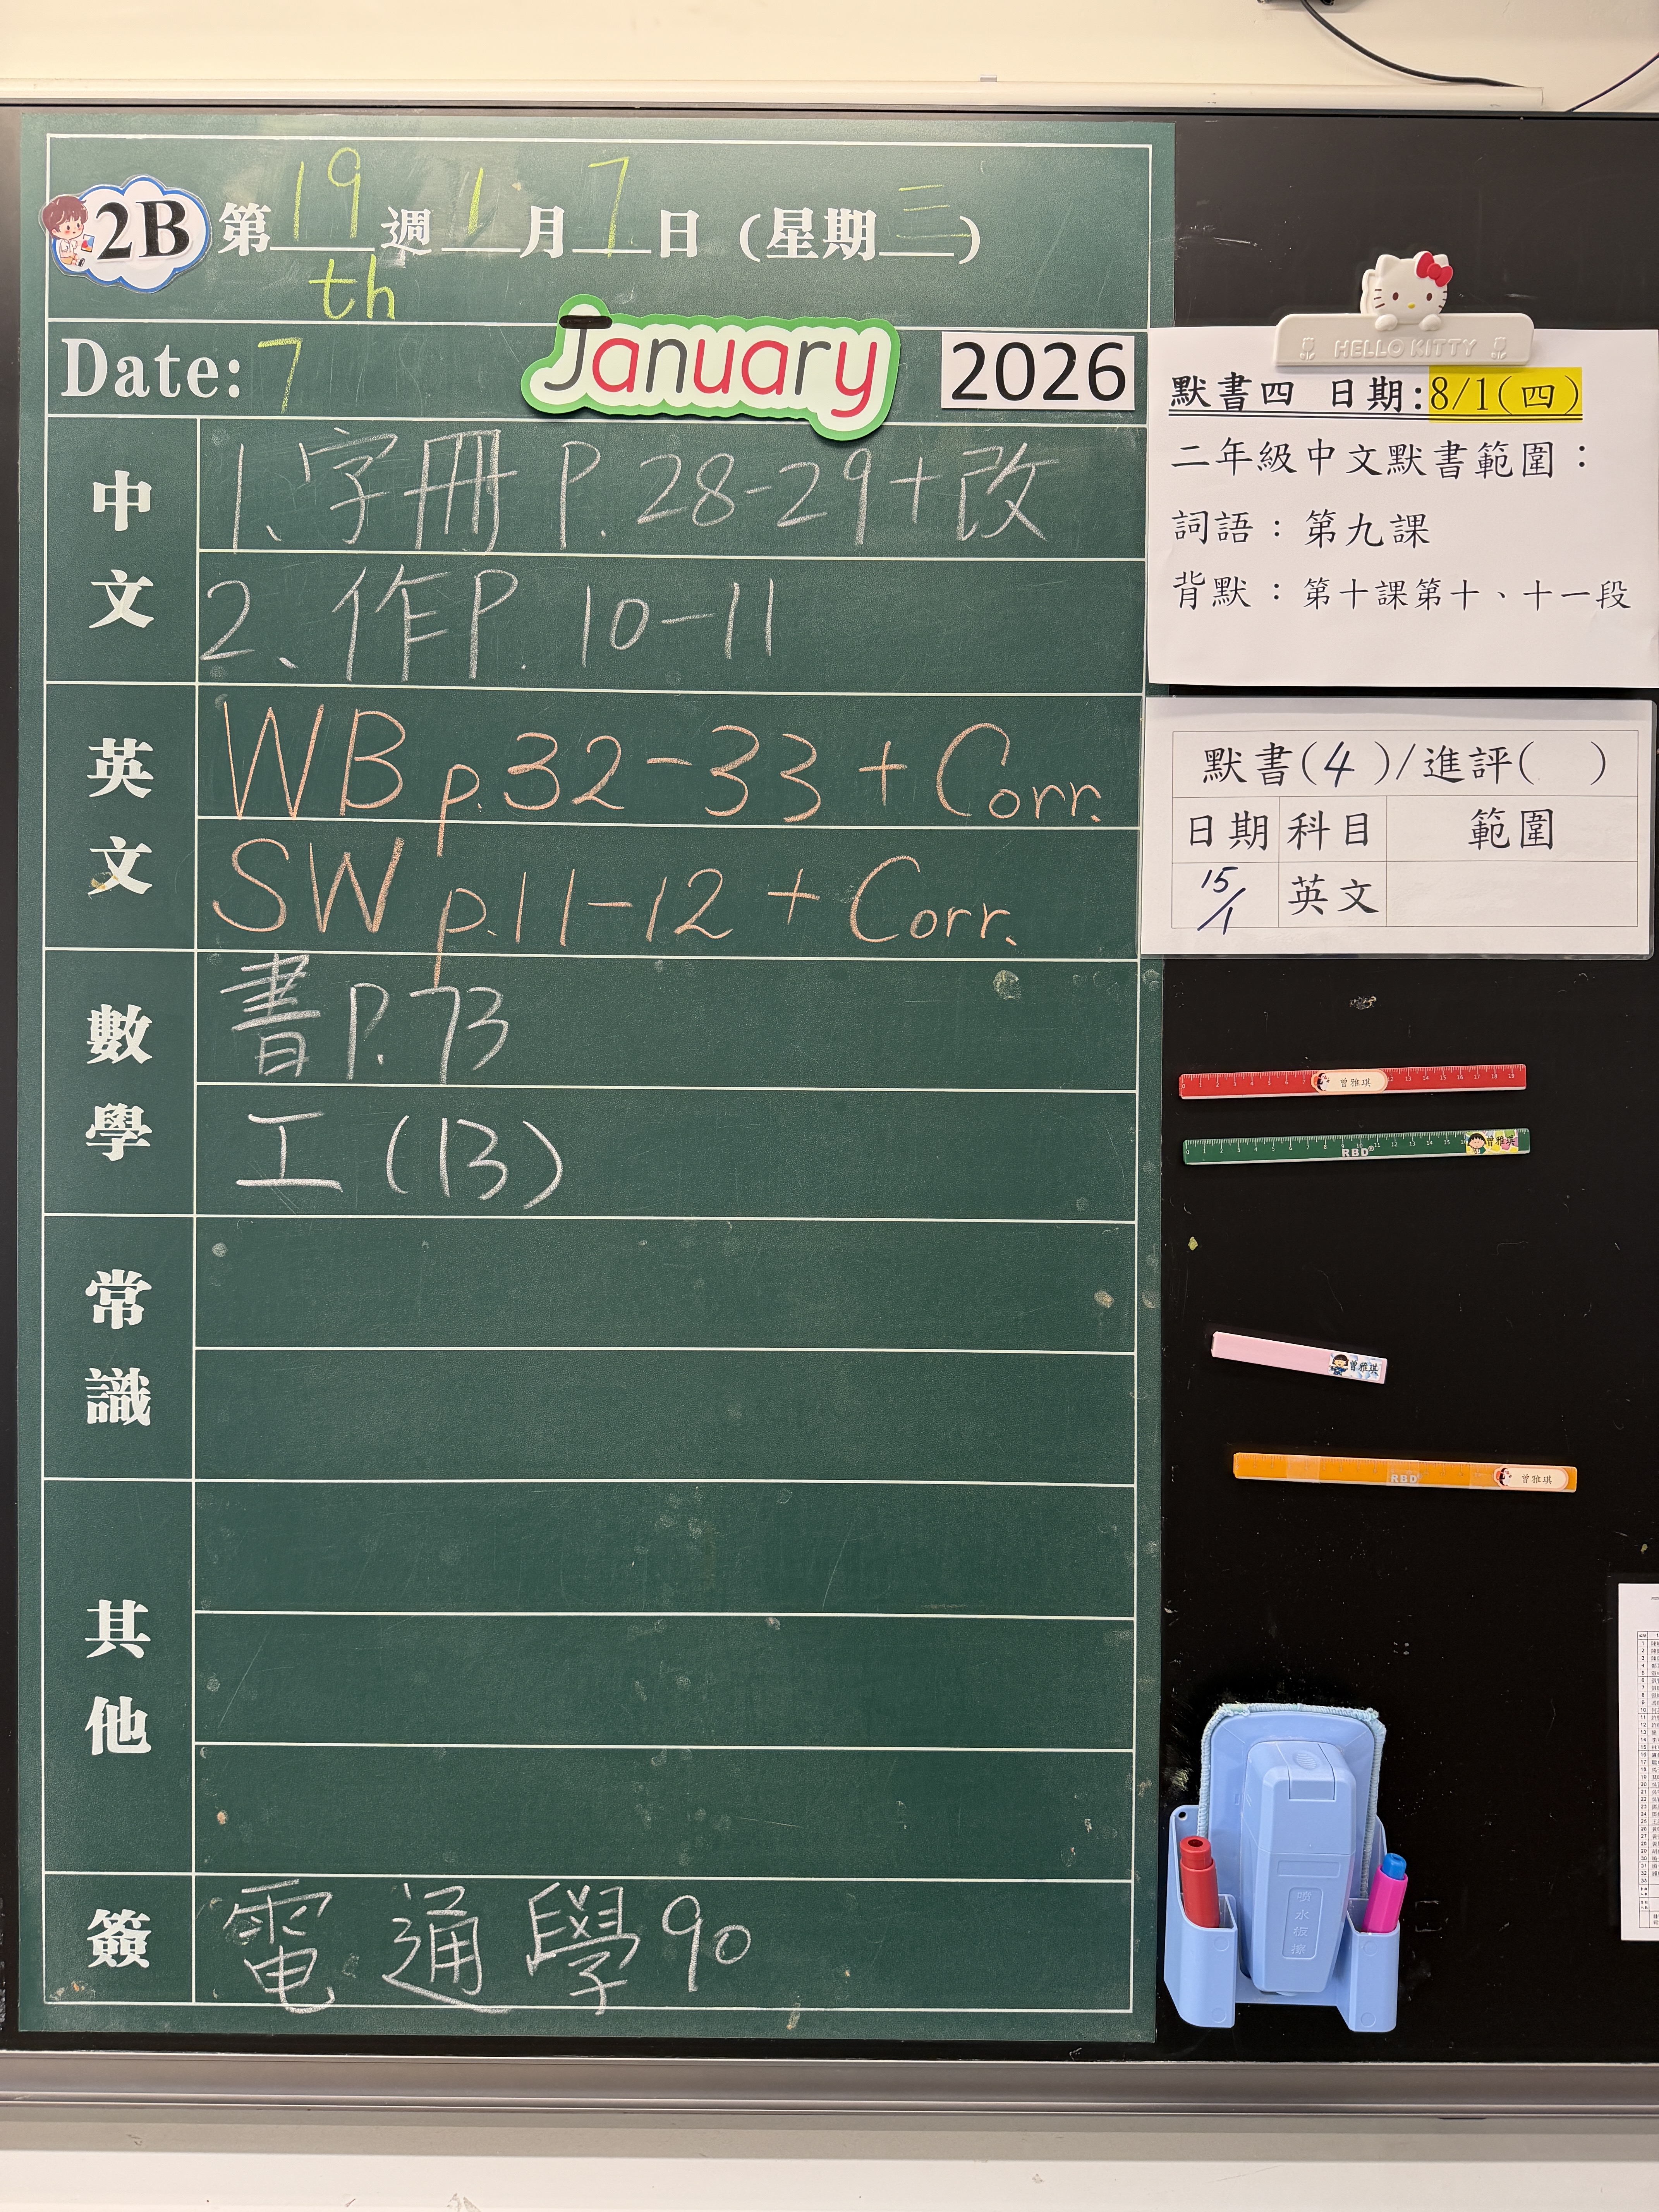 2B 第19週1月7日(星期三)
th
Date: 7 January 2026
中文
1、字冊 P.28-29+改
2、作P. 10-11
英文
WB p.32-33 + Corr.
SW p.11-12 + Corr.
數學
書 P.73
工 (13)
常識
其他
簽
電 通 學90
HELLO KITTY
默書四 日期:8/1(四)
二年級中文默書範圍：
詞語：第九課
背默：第十課第十、十一段
默書(4)/進評( )
日期 科目 範圍
15/1 英文
曾雅琪
RBD 曾雅琪
曾雅琪
RBD 曾雅琪
喷水板擦